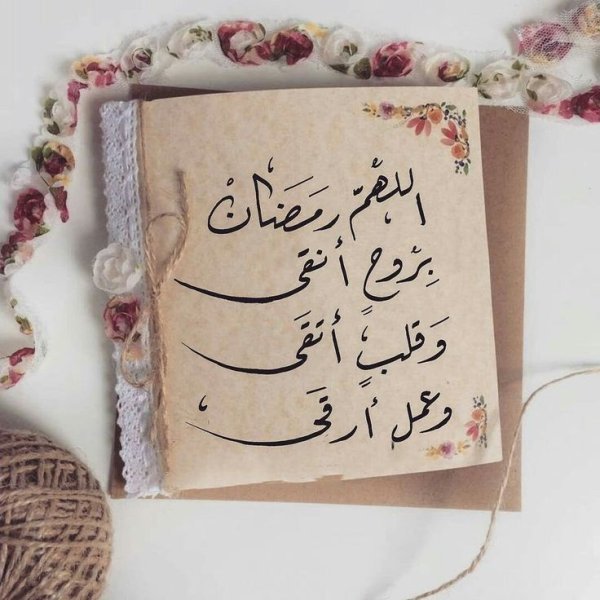 اللهمّ رمَضَان
بِرْوحٍ أنقى
وَقلبٍ أتقَى
وعمل أرقَى